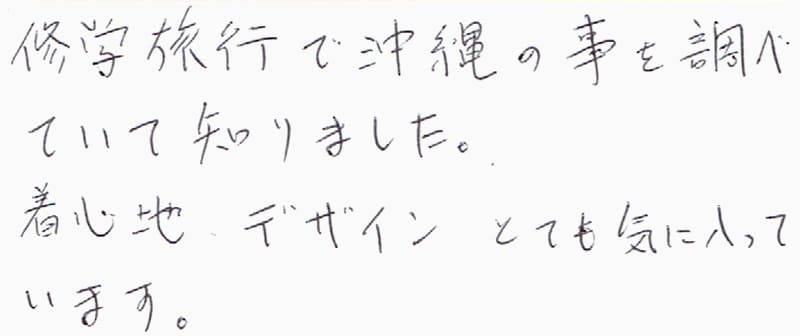 修学旅行で沖縄の事を調べ
ていて知りました。
着心地 デザイン とても気に入って
います。